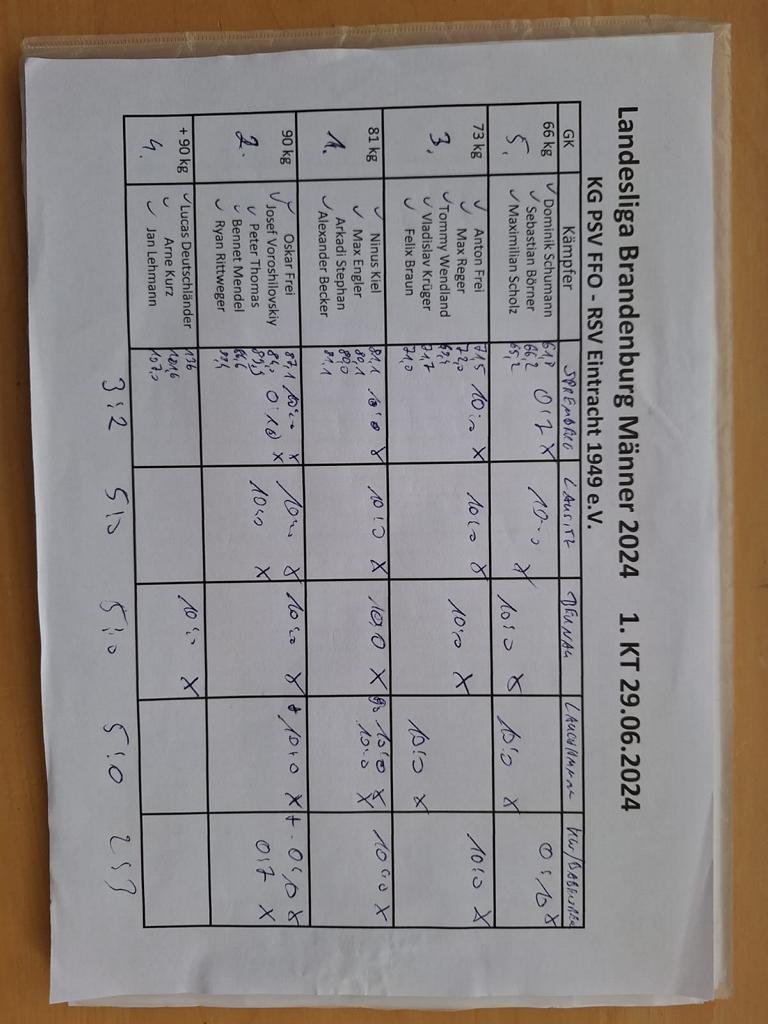 Landesliga Brandenburg Männer 2024 1. KT 29.06.2024
KG PSV FFO - RSV Eintracht 1949 e.V.
GK Kämpfer SPREMBERG LAUSITZ BERNAU
66 kg Dominik Schumann 61,8 0:7 x 10:0 x 10:0 x 10:0 x 0:10 x
5. Sebastian Börner 66,2
Maximilian Scholz 65,2
73 kg Anton Frei 71,5 10:0 x 10:0 x 10:0 x 10:0 x 10:0 x
Max Reger 72,0
3. Tommy Wendland
Vladislav Krüger 71,7
Felix Braun 71,0
81 kg Ninus Kiel 81,1 10:0 x 10:0 x 10:0 x 10:0 x 10:0 x
Max Engler 80,1 10:0 x
1. Arkadi Stephan 80,0
Alexander Becker 81,1
90 kg Oskar Frei 87,1 10:0 x 10:0 x 10:0 x + 10:0 x + 0:10 x
Josef Voroshilovskiy 84,0 0:10 x 10:0 x 0:7 x
2. Peter Thomas
Bennet Mendel
Ryan Rittweger
+ 90 kg Lucas Deutschländer 10:0 x
4. Arne Kurz
Jan Lehmann 107,0
3:2 5:0 5:0 5:0 2:3